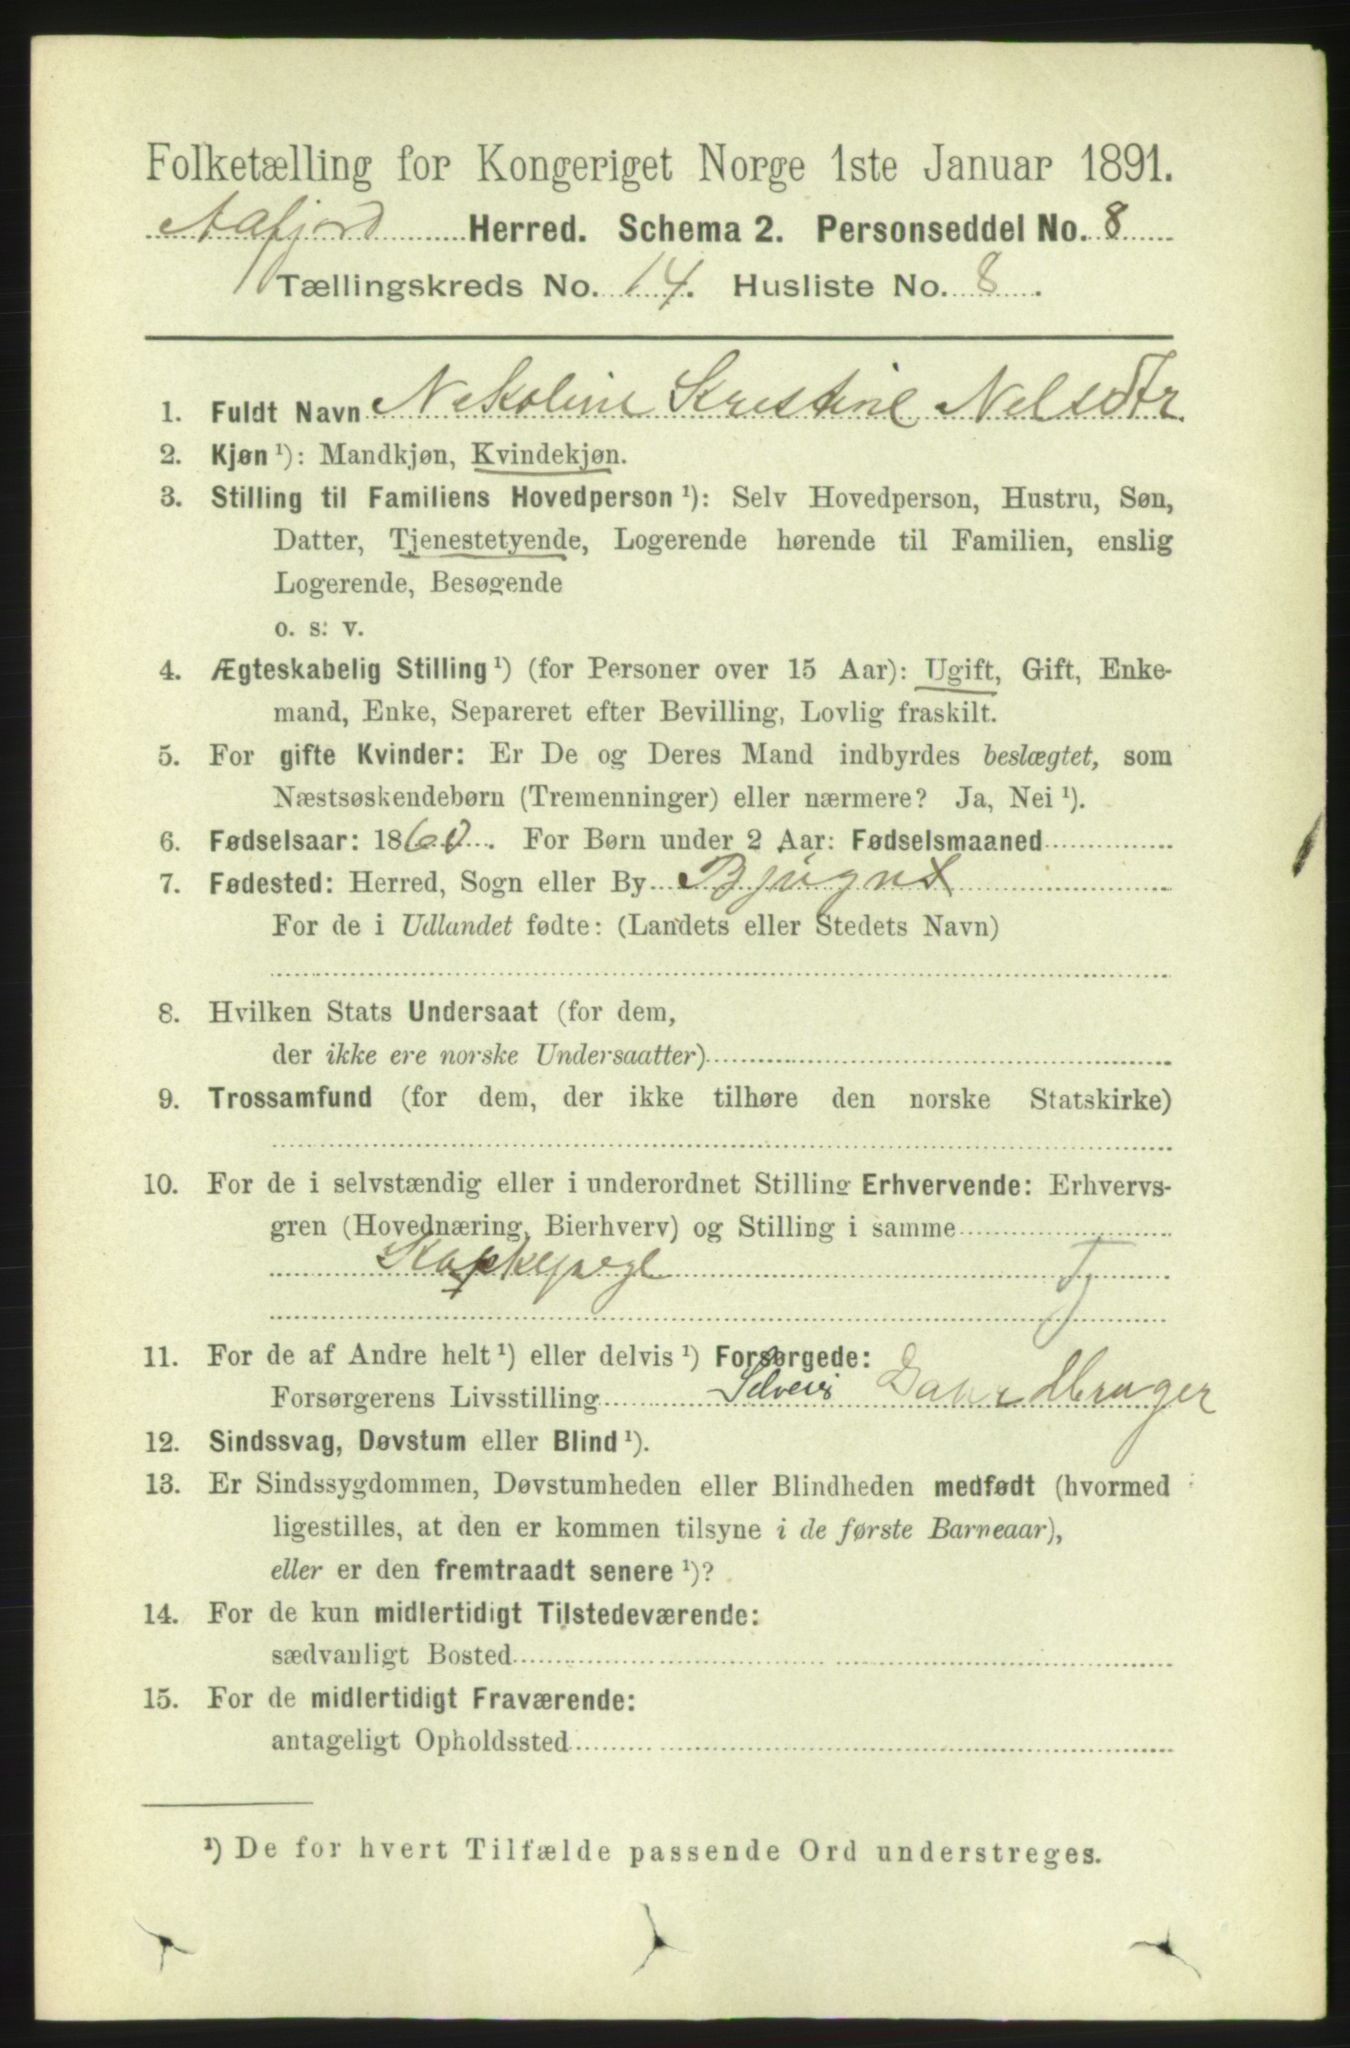 Folketælling for Kongeriget Norge 1ste Januar 1891.
Aafjord Herred. Schema 2. Personseddel No. 8
Tællingskreds No. 14. Husliste No. 8.
1. Fuldt Navn Nekoline Kristine Nelsdtr
2. Kjøn ¹): Mandkjøn, Kvindekjøn.
3. Stilling til Familiens Hovedperson ¹): Selv Hovedperson, Hustru, Søn,
Datter, Tjenestetyende, Logerende hørende til Familien, enslig
Logerende, Besøgende
o. s. v.
4. Ægteskabelig Stilling ¹) (for Personer over 15 Aar): Ugift, Gift, Enke-
mand, Enke, Separeret efter Bevilling, Lovlig fraskilt.
5. For gifte Kvinder: Er De og Deres Mand indbyrdes beslægtet, som
Næstsøskendebørn (Tremenninger) eller nærmere? Ja, Nei ¹).
6. Fødselsaar: 1860. For Børn under 2 Aar: Fødselsmaaned
7. Fødested: Herred, Sogn eller By Bjugn
For de i Udlandet fødte: (Landets eller Stedets Navn)
8. Hvilken Stats Undersaat (for dem,
der ikke ere norske Undersaatter)
9. Trossamfund (for dem, der ikke tilhøre den norske Statskirke)
10. For de i selvstændig eller i underordnet Stilling Erhvervende: Erhvervs-
gren (Hovednæring, Bierhverv) og Stilling i samme
Tj
11. For de af Andre helt ¹) eller delvis ¹) Forsørgede:
Forsørgerens Livsstilling Selveier
12. Sindssvag, Døvstum eller Blind ¹).
13. Er Sindssygdommen, Døvstumheden eller Blindheden medfødt (hvormed
ligestilles, at den er kommen tilsyne i de første Barneaar),
eller er den fremtraadt senere ¹)?
14. For de kun midlertidigt Tilstedeværende:
sædvanligt Bosted
15. For de midlertidigt Fraværende:
antageligt Opholdssted
¹) De for hvert Tilfælde passende Ord understreges.